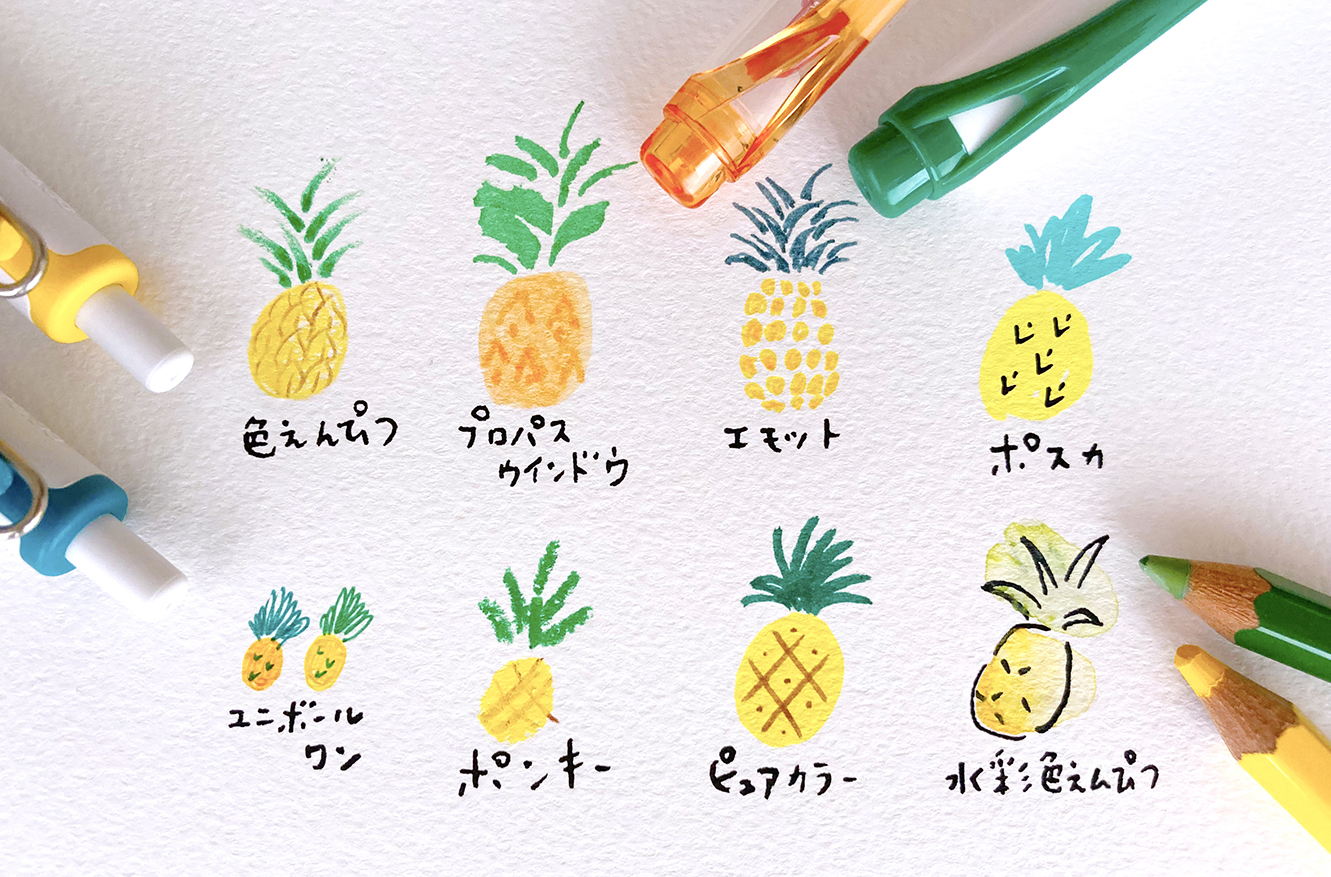 色えんぴつ
プロパス
ウインドウ
エモット
ポスカ
ユニボール
ワン
ポンキー
ピュアカラー
水彩色えんぴつ